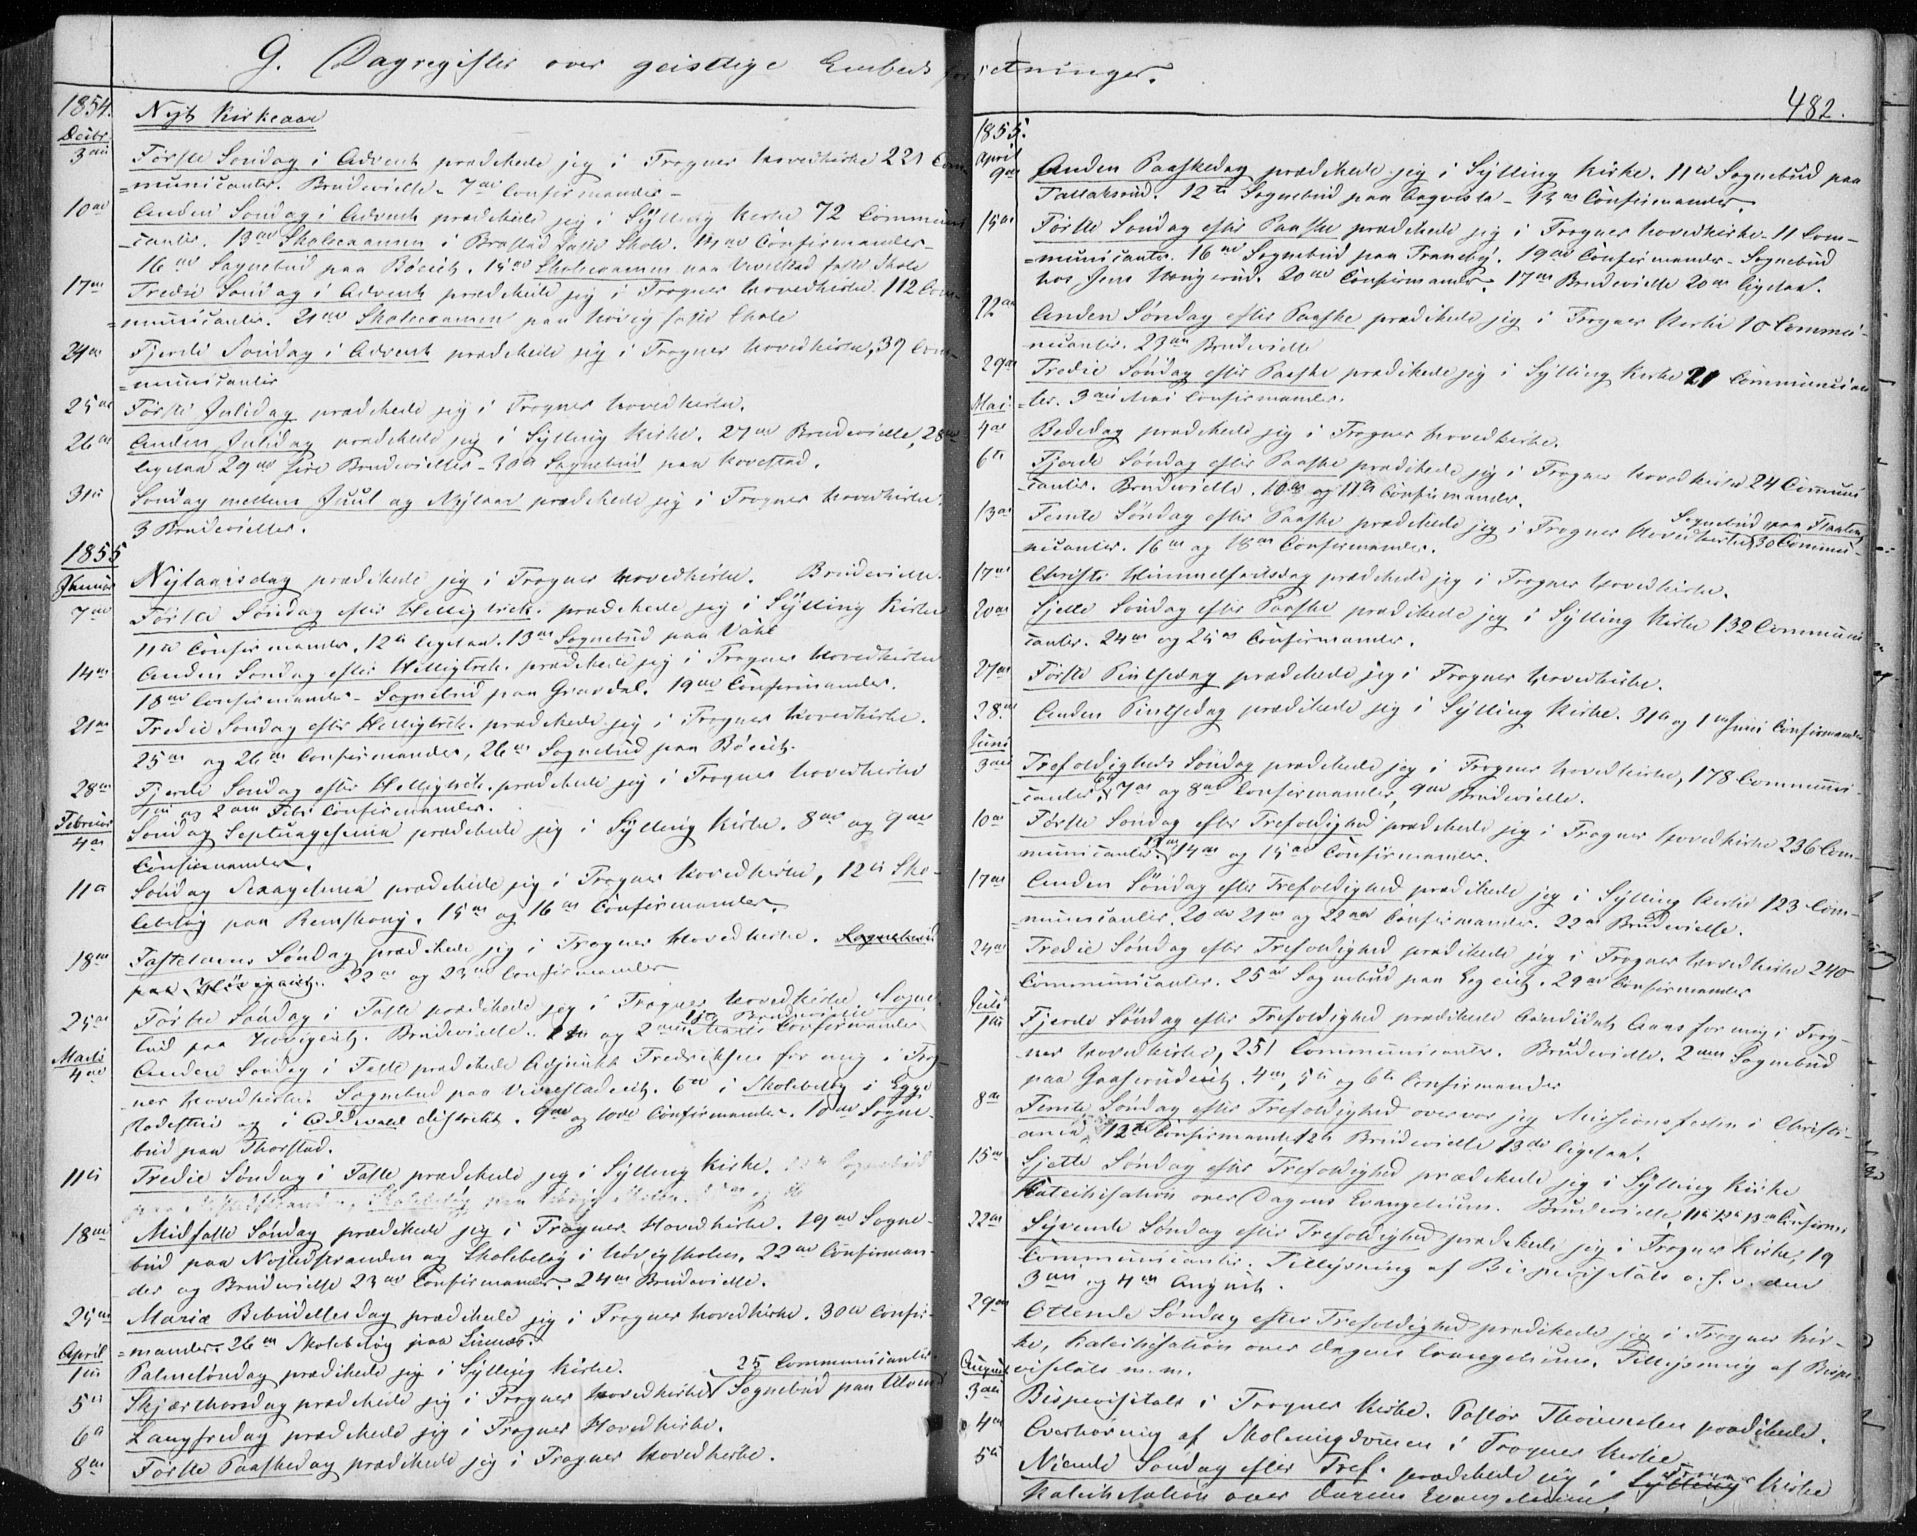 G. Dagregister over geistlige Embedsforretninger.
1854.
Decbr. Nyt Kirkeaar
3die Første Søndag i Advent prædikede jeg i Frogner Hovedkirke 221 Com-
=municanter. Brudevielse. 7de Confirmander-
10de Anden Søndag i Advent prædikede jeg i Sylling Kirke 72 Communi-
-canter. 13de Skoleexamen i Brastad faste Skole. 14de Confirmander-
16de Sognebud paa Bøeeie. 15de Skoleexamen paa faste Skole
17de Tredie Søndag i Advent prædikede jeg i Frogner Hovedkirke. 112 Com-
=municanter. 21de Skoleexamen paa Høvig faste Skole
24de Fjerde Søndag i Advent prædikede jeg i Frogner Hovedkirke, 39 Com-
=municanter
25de Første Juledag prædikede jeg i Frogner Hovedkirke.
26de Anden Juledag prædikede jeg i Sylling Kirke. 27de Brudevielse, 28de
ligesaa 29de fire Brudevielser - 30te Sognebud paa Hovestad.
31te Søndag mellem Juul og Nytaar prædikede jeg i Frogner Hovedkirke.
3 Brudevielser.
1855
Januar Nytaarsdag prædikede jeg i Frogner Hovedkirke. Brudevielse.
7de Første Søndag efter Helligtrek. prædikede jeg i Sylling Kirke
11te Confirmander, 12te ligesaa. 13de Sognebud paa Vahl
14de Anden Søndag efter Helligtrek. prædikede jeg i Frogner Hovedkirke
18de Confirmander - Sognebud paa Gravdal. 19de Confirmander.
21de Tredie Søndag efter Helligtrek. prædikede jeg i Frogner Hovedkirke.
25de og 26de Confirmander, 26de Sognebud paa Bøeeie.
28de Fjerde Søndag efter Helligtrek. prædikede jeg i Frogner Hovedkirke
1ste og 2den Febr. Confirmander.
Februar
4de Søndag Septuagesima prædikede jeg i Sylling Kirke. 8de og 9de
Confirmander.
11te Søndag Sexagesima prædikede jeg i Frogner Hovedkirke, 12te Sko-
lebesøg paa Renskoug. 15de og 16de Confirmander.
18de Fastelavns Søndag prædikede jeg i Frogner Hovedkirke. Sognebud
paa 22de og 23de Confirmander
25de Første Søndag i Faste prædikede jeg i Frogner Hovedkirke. Sogne-
bud paa Høvigeie. Brudevielse. 1ste og 2den Marts Confirmander
1ste Brudevielse
Marts
4de Anden Søndag i Faste prædikede Adjunkt Fredriksen for mig i Frog-
ner Hovedkirke. Sognebud paa Vivelstadeie. 6te i Skolebesøg i Egge
Rodesten og i Oddevald distrikt. 9de og 10de Confirmander. 10de Sogne-
bud paa Thorstad.
11te Tredie Søndag i Faste prædikede jeg i Sylling Kirke.
18de Midfaste Søndag prædikede jeg i Frogner Hovedkirke. 19de Sogne-
bud paa Nøstedstranden og Skolebesøg i Høvigskolen. 22de Confirman-
der og Brudevielse 23de Confirmander. 24de Brudevielse.
25de Mariæ Bebudelsesdag prædikede jeg i Frogner Hovedkirke. 30te Confir-
=mander. 26de Skolebesøg paa Linnæs.
April
1ste Palmesøndag prædikede jeg i Sylling Kirke. 25 Communicanter.
5te Skjærthorsdag prædikede jeg i Frogner Hovedkirke Sognebud paa
6te Langfredag prædikede jeg i Frogner Hovedkirke.
8de Første Paaskedag prædikede jeg i Frogner Hovedkirke.
482.
1855.
April
9de Anden Paaskedag prædikede jeg i Sylling Kirke. 11te Sognebud paa
Tallaksrud. 12te Sognebud paa - 13de Confirmander.
15de Første Søndag efter Paaske prædikede jeg i Frogner Hovedkirke. 11 Com-
=municanter. 16de Sognebud paa Tranby. 19de Confirmander. Sognebud
hos Jens Haugerud. 20de Confirmander. 17de Brudevielse 20de ligesaa.
22de Anden Søndag efter Paaske prædikede jeg i Frogner Kirke 10 Commu-
nicanter. 23de Brudevielse
29de Tredie Søndag efter Paaske prædikede jeg i Sylling Kirke 21 Communican-
Mai =ter. 3die Mai Confirmander.
4de Bededag prædikede jeg i Frogner Hovedkirke.
6te Fjerde Søndag efter Paaske prædikede jeg i Frogner Hovedkirke 24 Communi
canter. Brudevielse. 10de og 11te Confirmander.
13de Femte Søndag efter Paaske prædikede jeg i Frogner Hovedkirke 30 Commu-
Sognebud paa Flaaten
nicanter. 16de og 18de Confirmander.
17de Christi Himmelfartsdag prædikede jeg i Frogner Hovedkirke.
20de Sjette Søndag efter Paaske prædikede jeg i Sylling Kirke 132 Communi
canter. 24de og 25de Confirmander.
27de Første Pintsedag prædikede jeg i Frogner Hovedkirke.
28de Anden Pintsedag prædikede jeg i Sylling Kirke. 31te og 1ste Juni Confirmander
Juni
3die Trefoldigheds Søndag prædikede jeg i Frogner Hovedkirke, 178 Communi-
canter 6te 7de og 8de Confirmander, 9de Brudevielse.
10de Første Søndag efter Trefoldighed prædikede jeg i Frogner Hovedkirke 236 Com-
municanter. 14de og 15de Confirmander.
17de Anden Søndag efter Trefoldighed prædikede jeg i Sylling Kirke 123 Com-
municanter. 20de 21de og 22de Confirmander. 22de Brudevielse.
24de Tredie Søndag efter Trefoldighed prædikede jeg i Frogner Hovedkirke 240
Communicanter. 25de Sognebud paa Eegeie. 29de Confirmander
Juli
1ste Fjerde Søndag efter Trefoldighed prædikede Candidat Aars for mig i Frog-
ner Hovedkirke, 251 Communicanter. Brudevielse. 2den Sognebud
paa Gaaserudeie. 4de, 5te og 6te Confirmander
8de Femte Søndag efter Trefoldighed overvar jeg Missionsfesten i Christi-
ania, 12te Confirmander, 12te Brudevielse 13de ligesaa.
15de Sjette Søndag efter Trefoldighed prædikede jeg i Sylling Kirke
Katechisation over Dagens Evangelium. Brudevielse, 11te 12te 13de Confirm.
22de Syvende Søndag efter Trefoldighed prædikede jeg i Frogner Kirke, 19
Communicanter. Tillysning af Bispevisitats o.s.v. den
3die og 4de August.
29de Ottende Søndag efter Trefoldighed prædikede jeg i Frogner Kir-
ke, Katechisation over dagens Evangelium. Tillysning af Bispe-
August visitats m.m.
3die Bispevisitats i Frogner Kirke. Pastor Thoresen prædikede.
4de Overhøring af Skoleungdommen i Frogner Kirke
5te Niende Søndag efter Tref. prædikede jeg i Sylling Frogner Kirke
Katechisation over dagens Evangelium.